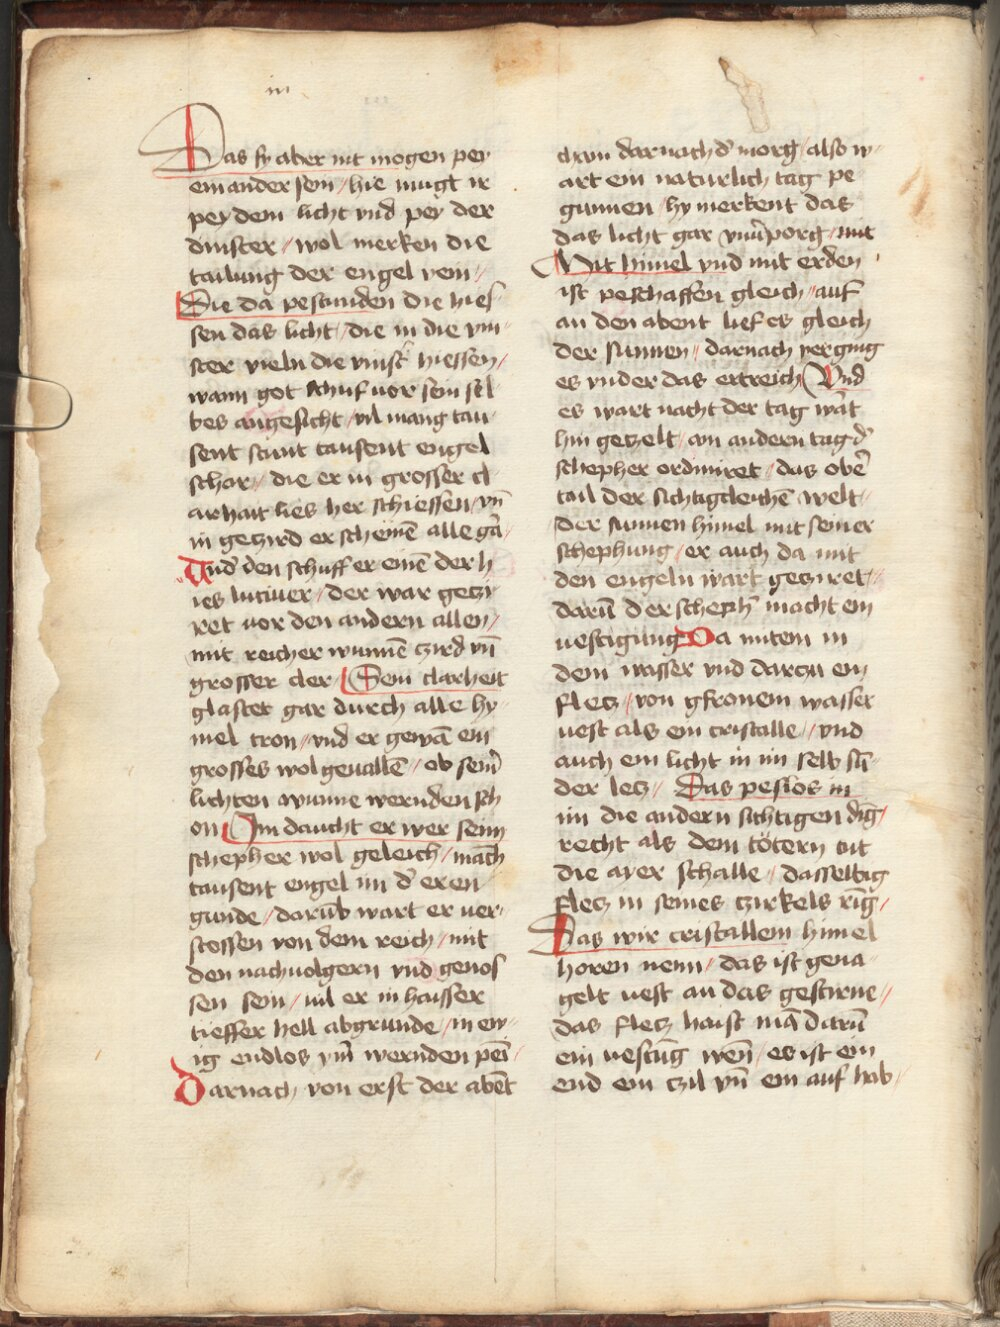 m
Das sy aber nit mogen pey
ein ander sein / hie mugt ir
pey dem licht vnd pey der
vinster / wol merken die
tailung der engel rein /
Die da pestunden die hies
sen das licht / die in die vin
ster vieln die vinstˀ hiessen /
wann got schuf vor sein sel
bes angesicht / vil mang tau
sent stunt tausent engel
schar / die er in grosser cl
arhait lies her schiessen / vn̄
in gezird erscheinē alle gā
Vnd den schuff er einē der h
ies luciuer / der war gezi
ret vor den andern allen /
mit reicher wunnē czird vn̄
grosser cler / Sein clarheit
glastet gar durch alle hy
mel tron / vnd er gewā ein
grosses wolgeuallē / ob seim̄
lichten wunne wernden sch
on Im daucht er wer seim
schepher wol geleich / manch
tausent engel im dˀ eren
gunde / darūb wart er ver
stossen von dem reich / mit
den nachuolgern vnd genos
sen sein / vil er in haisser
tieffer hell abgrunde / in ew
ig endlos vm̄ wernden pein /
Darnach von erst der abēt
cham darnach dˀ morḡ / also w
art ein naturlich tag pe
gunnen / hy merkent das
das licht gar vnuˀporḡ / mit
Mit himel vnd mit erden
ist peschaffen gleich / auf
an den abent lief es gleich
der sunnen / darnach verging
es vnder das ertreich Vnd
es wart nacht der tag wart
hin gezelt / am andern tag dˀ
schepher ordiniret / das obeˀ
tail der sichtigcleichē welt /
der sunnen himel mit seiner
schephung / er auch da mit
den engeln wart geziret /
darūb der schephˀ macht ein
vestigung Da mitem in
dem wasser vnd darczu ein
flecz / von gfronem wasser
vest als ein cristalle / vnd
auch ein licht in im selb sū
der lecz / Das peslos in
im die andern sichtigen dīg /
recht als dem tötern tut
die ayer schalle / dasselbig
flecz in seines czirkels rīg /
Das wir cristallein himel
horen nenn / das ist gena
gelt vest an das gestirne /
das flecz haist mā darūb
ein vestūg wen̄ / es ist ein
end ein czil vn̄ ein auf hab /